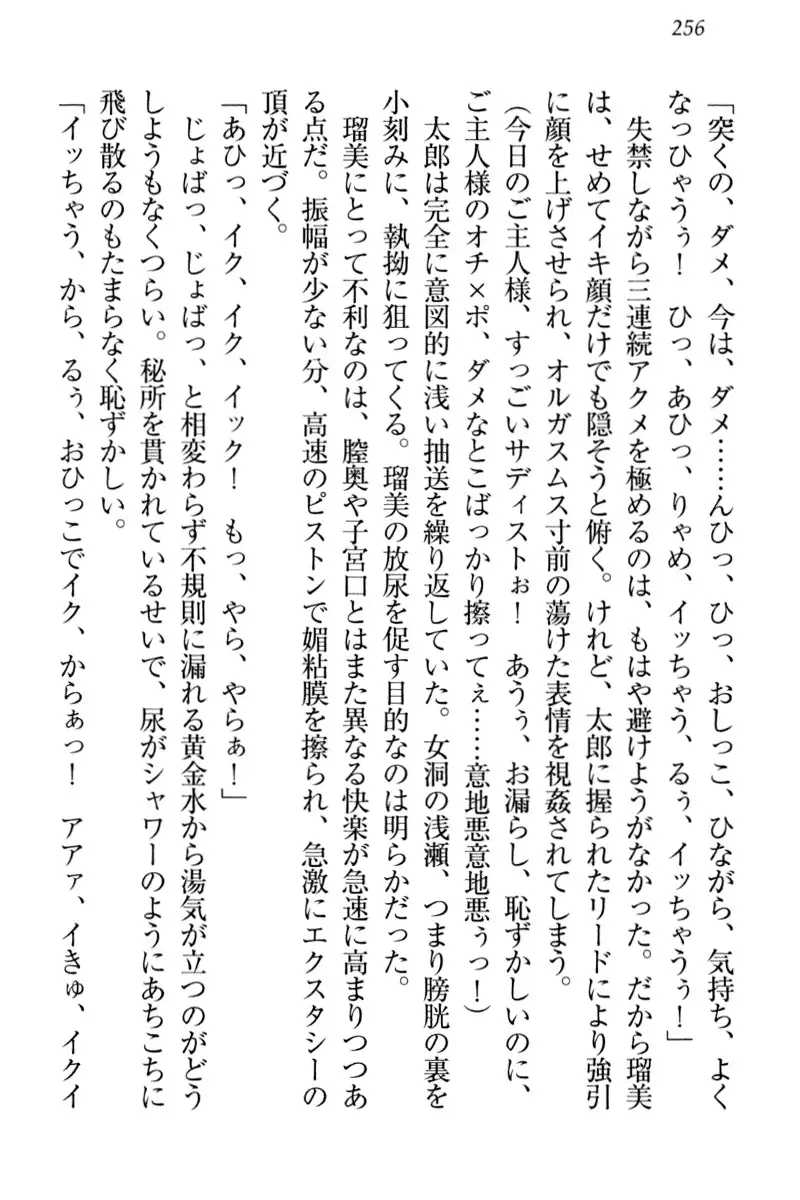 256
「突くの、ダメ、今は、ダメ……んひっ、ひっ、おしっこ、ひながら、気持ち、よく
なっひゃうぅ！　ひっ、あひっ、りゃめ、イッちゃう、るぅ、イッちゃうぅ！」
　失禁しながら三連続アクメを極めるのは、もはや避けようがなかった。だから瑠美
は、せめてイキ顔だけでも隠そうと俯く。けれど、太郎に握られたリードにより強引
に顔を上げさせられ、オルガスムス寸前の蕩けた表情を視姦されてしまう。
（今日のご主人様、すっごいサディストぉ！　あうぅ、お漏らし、恥ずかしいのに、
ご主人様のオチ×ポ、ダメなとこばっかり擦ってぇ……意地悪意地悪ぅっ！）
　太郎は完全に意図的に浅い抽送を繰り返していた。女洞の浅瀬、つまり膀胱の裏を
小刻みに、執拗に狙ってくる。瑠美の放尿を促す目的なのは明らかだった。
　瑠美にとって不利なのは、膣奥や子宮口とはまた異なる快楽が急速に高まりつつあ
る点だ。振幅が少ない分、高速のピストンで媚粘膜を擦られ、急激にエクスタシーの
頂が近づく。
「あひっ、イク、イク、イック！　もっ、やら、やらぁ！」
　じょばっ、じょばっ、と相変わらず不規則に漏れる黄金水から湯気が立つのがどう
しようもなくつらい。秘所を貫かれているせいで、尿がシャワーのようにあちこちに
飛び散るのもたまらなく恥ずかしい。
「イッちゃう、から、るぅ、おひっこでイク、からぁっ！　アアァ、イきゅ、イクイ